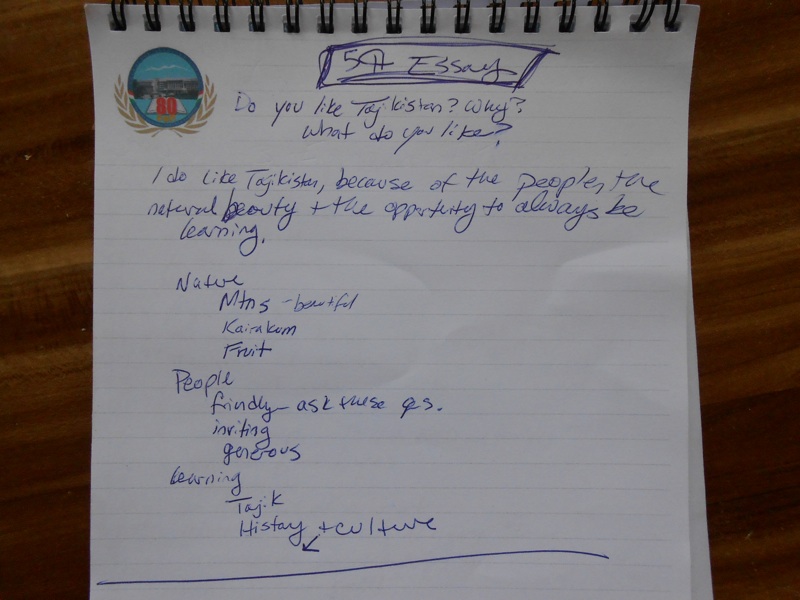 80
5¶ Essay
Do you like Tajikistan? Why?
What do you like?
I do like Tajikistan, because of the people, the
natural beauty + the opportunity to always be
learning.
Nature
Mtns - beautiful
Kairakum
Fruit
People
friendly - ask these qs.
inviting
generous
Learning
Tajik
History + culture